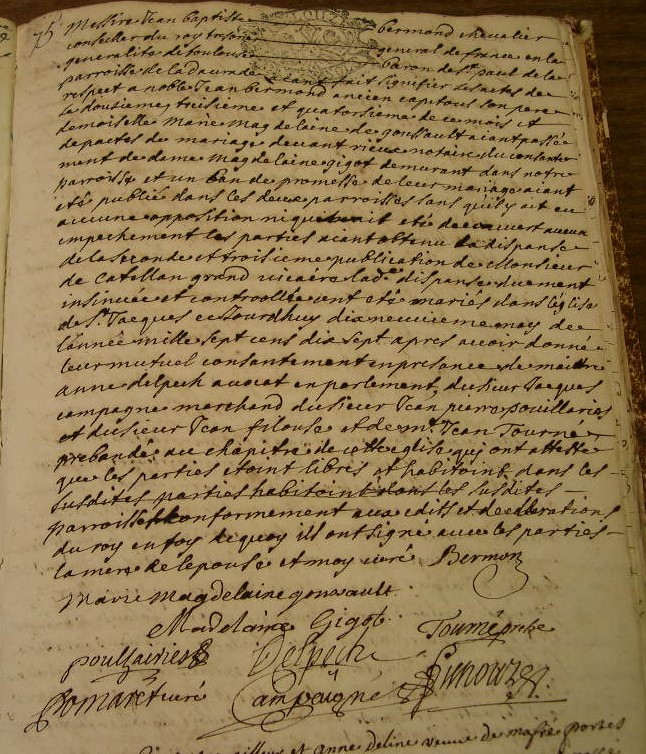 75
Messire Jean baptiste bermond chevalier
conseiller du roy tresorier general de france en la
generalité de toulouse baron de st. paul de la
parroisse de la daurade ayant fait signifier les actes de
respect a noble Jean bermond ancien capitoul son pere
le dousieme treisieme et quatorsieme de ce mois et
demoiselle marie magdelaine de goussault aiant passée
de pactes de mariage devant rieux notaire du consante
ment de dame magdelaine gigot demurant dans notre
parroisse et un ban de promesse de leur mariage aiant
eté publié dans les deux parroisses sans quil y ait eu
aucune opposition ni quil ait eté decouvert aucun
empechement les parties aiant obtenu la dispanse
de la seconde et troisieme publication de Monsieur
de Catellan grand vicaire lade. dispanse duement
insinuée et controollée ont eté mariés dans l'eglise
de St. Jacques ce jourdhuy dixneuvieme may de
l'année mille sept cens dix sept apres avoir donné
leur mutuel consantement en presance de maitre
anne delpech avocat en parlement, du sieur Jacques
campagne marchand du sieur Jean pierre pouillaries
et du sieur Jean filouse et de mr. Jean Tourné
prebandé au chapitre de cette eglise qui ont attesté
que les parties etoint libres et habitoint dans les
susdites parties habitoint dans les susdites
parroisses conformement aux edits et declarations
du roy en foy de quoy ills ont signé avec les parties
la mere de l'epouse et moy curé Bermon
Marie Magdelaine goussault
Madelaine Gigot Tourné prebe
poullairies Delpech
Pomaret curé Campaigne
et anne deline veuve de